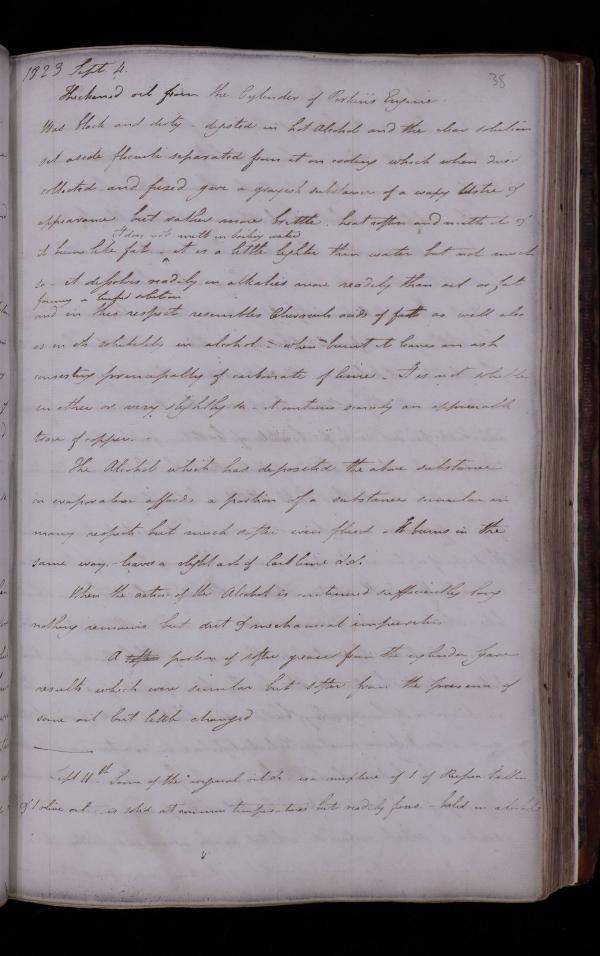 1823 Sept 4.
38
Thickened oil from the Cylinder of Perkins Engine
Was black and dirty - digested in hot Alcohol and the clear solution
set aside flocculi separated from it on cooling which when
collected and fused gave a grayish substance of a waxy lustre &
appearance but rather more brittle. heat softens and melts it &
It does not melt in boiling water
it burns like fat - it is a little lighter than water but not much
so - it dissolves readily in alkalies more readily than oil or fat
forming a turbid solution
and in this respect resembles Chevreuls acids of fat as well also
as in its solubility in alcohol - when burnt it leaves an ash
consisting principally of carbonate of lime - It is not soluble
in ether or very slightly so - it contains scarcely an appreciable
trace of copper.
The Alcohol which has deposited the above substance
on evaporation affords a portion of a substance similar in
many respects but much softer even fluid - It burns in the
same way. leaves a slight ash of Carb lime &c &c.
When the action of the Alcohol is continued sufficiently long
nothing remains but dirt & mechanical impurities
A portion of softer grease from the cylinder gave
results which were similar but softer from the presence of
some oil but little changed
Sept 11th Some of the original oil &c is a mixture of 1 of Russia Tallow
& 1 olive oil - is solid at common temperatures but readily fuses - boiled in alcohol